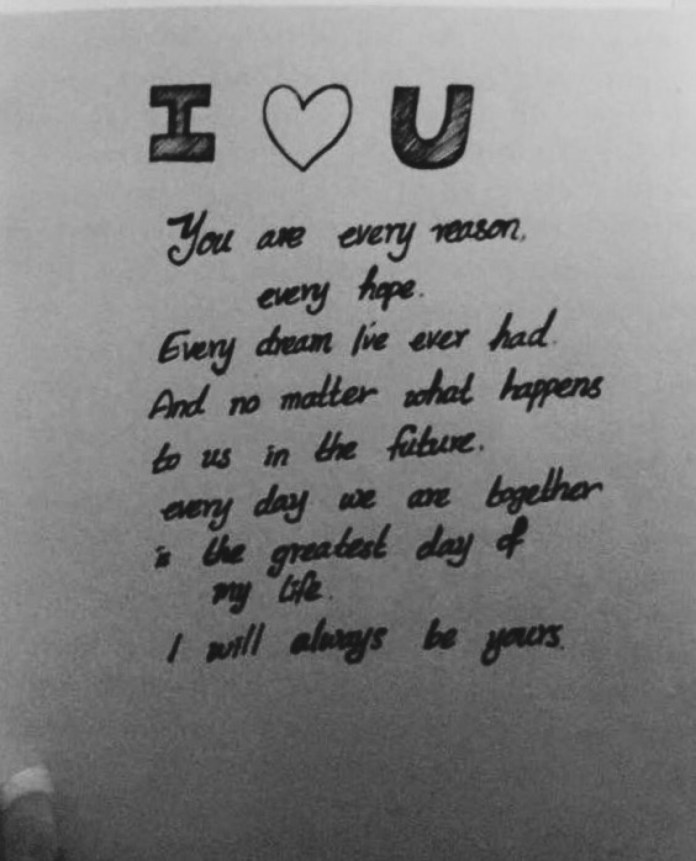 I ♡ U
You are every reason,
every hope.
Every dream I've ever had.
And no matter what happens
to us in the future.
every day we are together
is the greatest day of
my life.
I will always be yours.